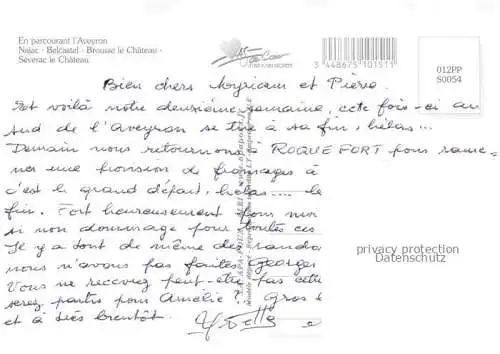 En parcourant l'Aveyron
Najac - Belcastel - Brousse le Château -
Séverac le Château
3 448675 101511
012PP
S0054
Bien chers Myriam et Pierre.
Et voilà notre deuxième semaine, cete fois-ci au
sud de l'aveyron se tire à sa fin, hélas...
Demain nous retournons à ROQUEFORT pour rame-
ner une provision de fromages à
c'est le grand départ, hélas.... le
fin. Fort heureusement pour
si non dommage pour toutes ces
Il y a dont de même des randos
nous n'avons pas faites Georges
Vous ne recevrez peut-être pas cette
serez partis pour Amélie? Gros
et à très bientôt.
privacy protection
Datenschutz